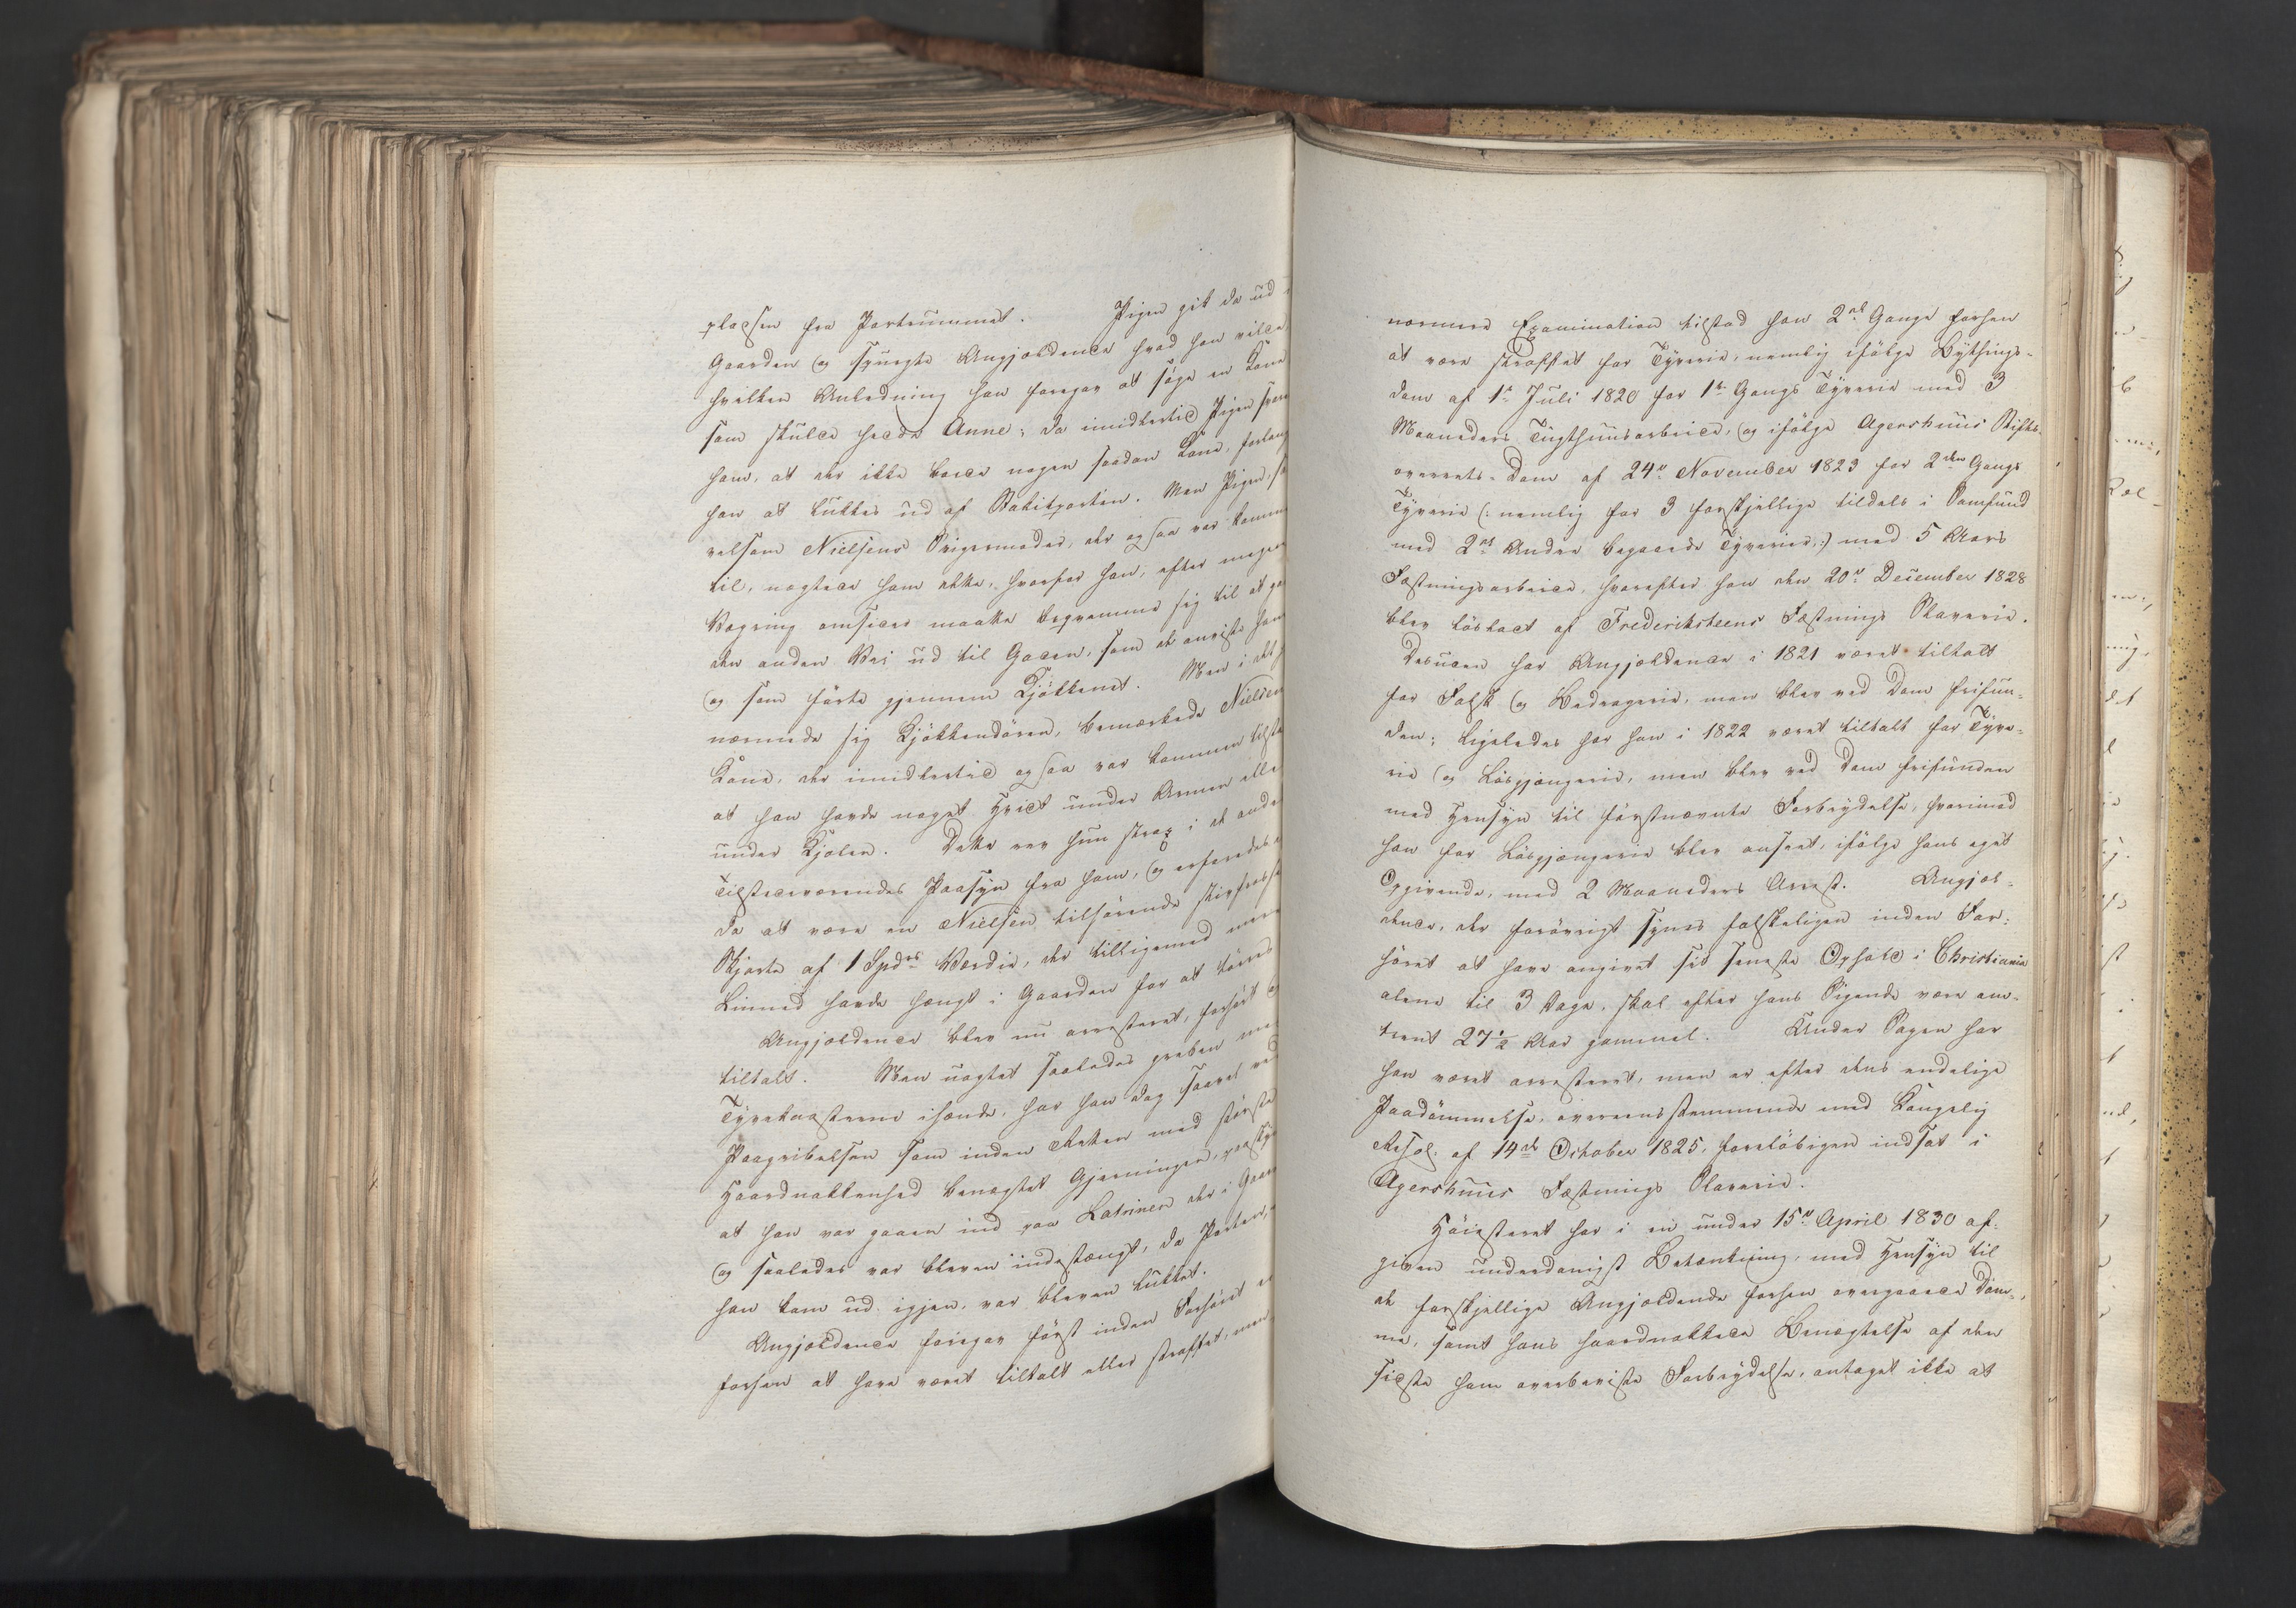 pladsen fra Portrummet. Pigen gik da ud i
Gaarden og spurgte Angjældende hvad han vilde
hvilken Anledning han foregav at søge en Kone
som skulde hedde Anne; da imidlertid Pigen svare
ham, at der ikke boede nogen saadan Kone, forlang
han at lukkes ud af Stakitporten. Men Pigen, s
velsom Nielsens Svigermoder, der ogsaa var komme
til, nægtede ham dette, hvorfor han, efter megen
Vægring omsider maatte beqvemme sig til at ga
den anden Vei ud til Gaden, som de anviste ham
og som førte gjennem Kjøkkenet. Men i det
nærmede sig Kjøkkendøren, bemærkede Nielsen
Kone, der imidlertid ogsaa var kommen tilste
at han havde noget Hvidt under Armen elle
under Kjolen. Dette rev hun strax i de ande
Tilstedeværendes Paasyn fra ham, og erfaredes
da at være en Nielsen tilhørende stivfrossen
Skjorte af 1 Spds Værdie, der tilligemed mere
Linned havde hængt i Gaarden for at tørres
Angjældende blev nu arresteret, forhørt og
tiltalt. Men uagtet saaledes greben med
Tyvekosterne ihænde, har han dog saavel ved
Paagribelsen som inden Retten med største
Haardnakkenhed benægtet Gjerningen, paastaa
at han var gaaen ind paa Latrinen der i Gaar
og saaledes var bleven indestængt, da Porten,
han kom ud igjen, var bleven lukket.
Angjældende foregav først inden Forhøret ei
forhen at have været tiltalt eller straffet, men
nærmere Examination tilstod han 2de Gange forhen
at være straffet for Tyverie, nemlig ifølge Bythings-
dom af 1te Juli 1820 for 1te Gangs Tyverie med 3
Maaneders Tugthuusarbeide, og ifølge Agershuus Stifts-
overrets-Dom af 24de November 1823 for 2den Gangs
Tyverie (: nemlig for 3 forskjellige tildels i Samfund
med 2de Andre begaaede Tyverier :) med 5 Aars
Fæstningsarbeide, hvorefter han den 20de December 1828
blev løsladt af Frederiksteens Fæstnings Slaverie.
Desuden har Angjældende i 1821 været tiltalt
for Falsk og Bedragerie, men blev ved Dom frifun-
den; ligeledes har han i 1822 været tiltalt for Tyve-
rie og Løsgjængerie, men blev ved Dom frifunden
med Hensyn til førstnævnte Forbrydelse, hvorimod
han for Løsgjængerie blev anseet, ifølge hans eget
Opgivende, med 2 Maaneders Arrest. Angjæl-
dende, der forøvrigt synes falskeligen inden For-
høret at have angivet sit seneste Ophold i Christiania
alene til 3 Dage, skal efter hans Sigende være om-
trent 27½ Aar gammel. Under Sagen har
han været arresteret, men er efter dens endelige
Paadømmelse, overeensstemmende med Kongelig
Resol. af 14de October 1825, foreløbigen indsat i
Agershuus Fæstnings Slaverie.
Høiesteret har i en under 15de April 1830 af-
given underdanigst Betænkning, med Hensyn til
de forskjellige Angjældende forhen overgaaede Dom-
me, samt hans haardnakkede Benægtelse af den
sidste ham overbeviste Forbrydelse, antaget ikke at